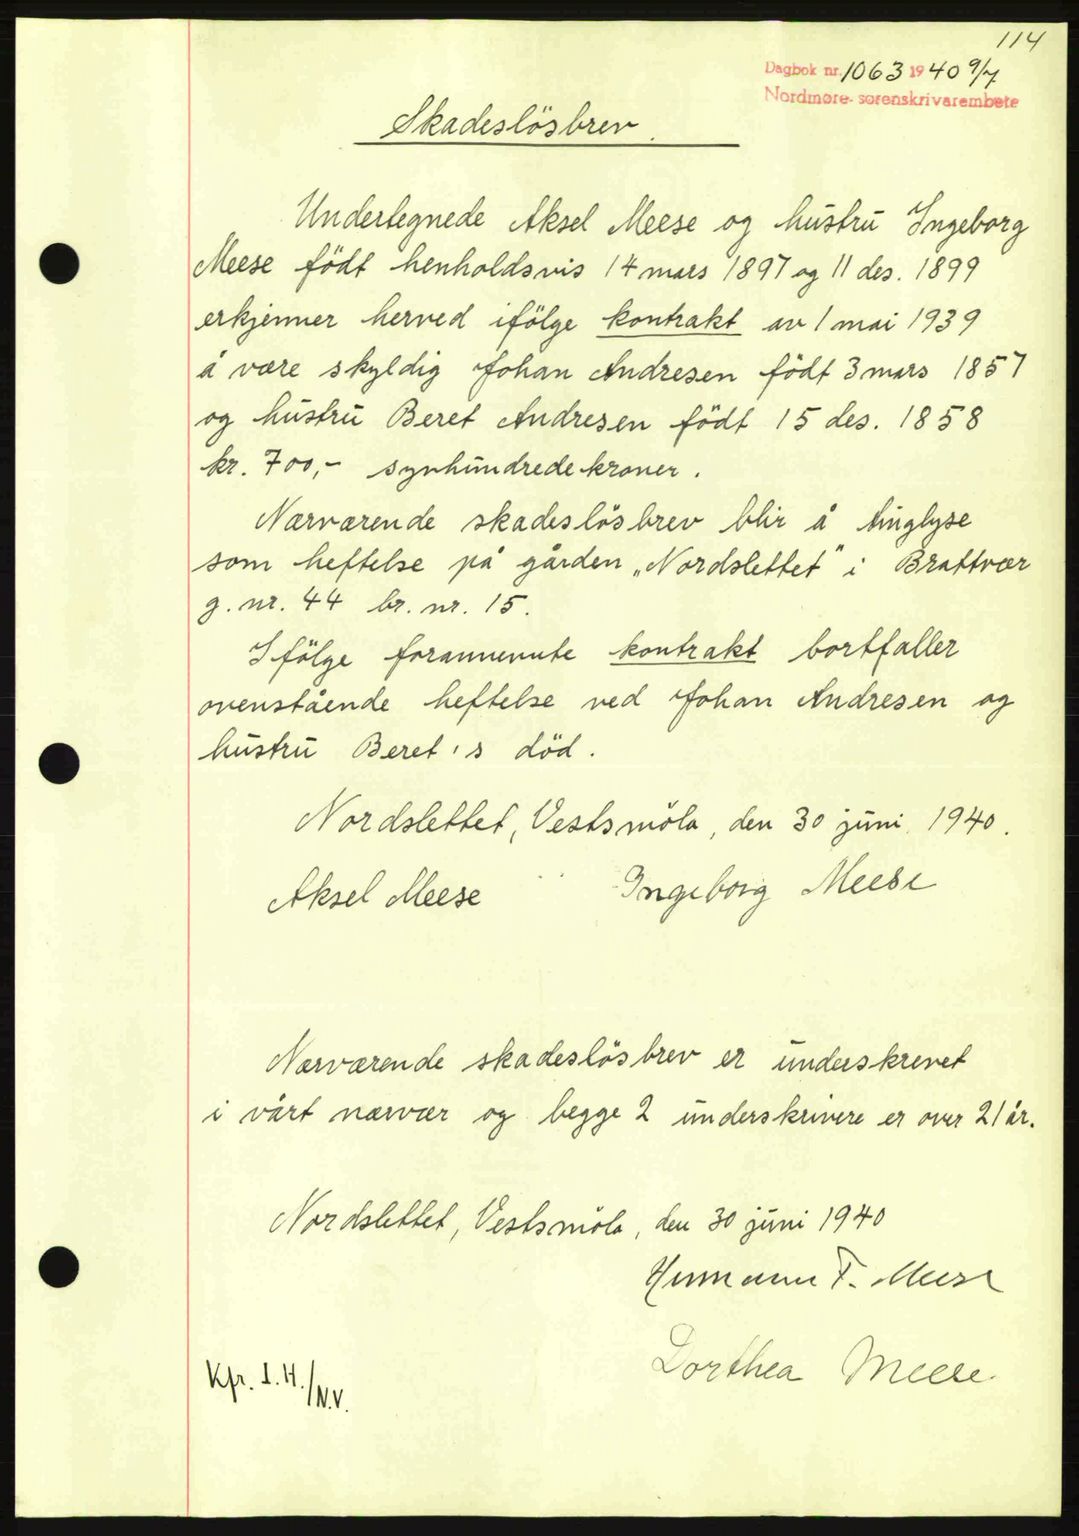 114
Dagbok nr. 1063 1940 9/7
Nordmøre sorenskrivarembete
Skadeslösbrev.
Undertegnede Aksel Meese og hustru Ingeborg
Meese födt henholdsvis 14 mars 1897 og 11 des. 1899
erkjenner herved ifölge kontrakt av 1 mai 1939
å være skyldig Johan Andresen födt 3 mars 1857
og hustru Beret Andresen födt 15 des. 1858
kr. 700,- syvhundrede kroner.
Nærværende skadeslösbrev blir å tinglyse
som heftelse på gården „Nordslettet" i Brattvær
g. nr. 44 br. nr. 15.
Ifölge forannevnte kontrakt bortfaller
ovenstående heftelse ved Johan Andresen og
hustru Beret's död.
Nordslettet, Vestsmöla, den 30 juni 1940.
Aksel Meese Ingeborg Meese
Nærværende skadeslösbrev er underskrevet
i vårt nærvær og begge 2 underskrivere er over 21 år.
Nordslettet, Vestsmöla, den 30 juni 1940
Hermann F. Meese
Dorthea Meese
Kfr. I.H./N.V.